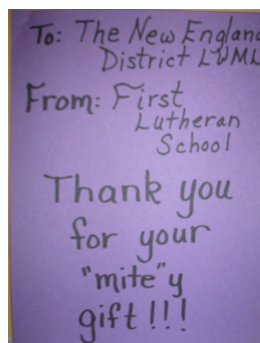 To: The New England
District LWML
From: First
Lutheran
School
Thank you
for your
"mite"y
gift!!!